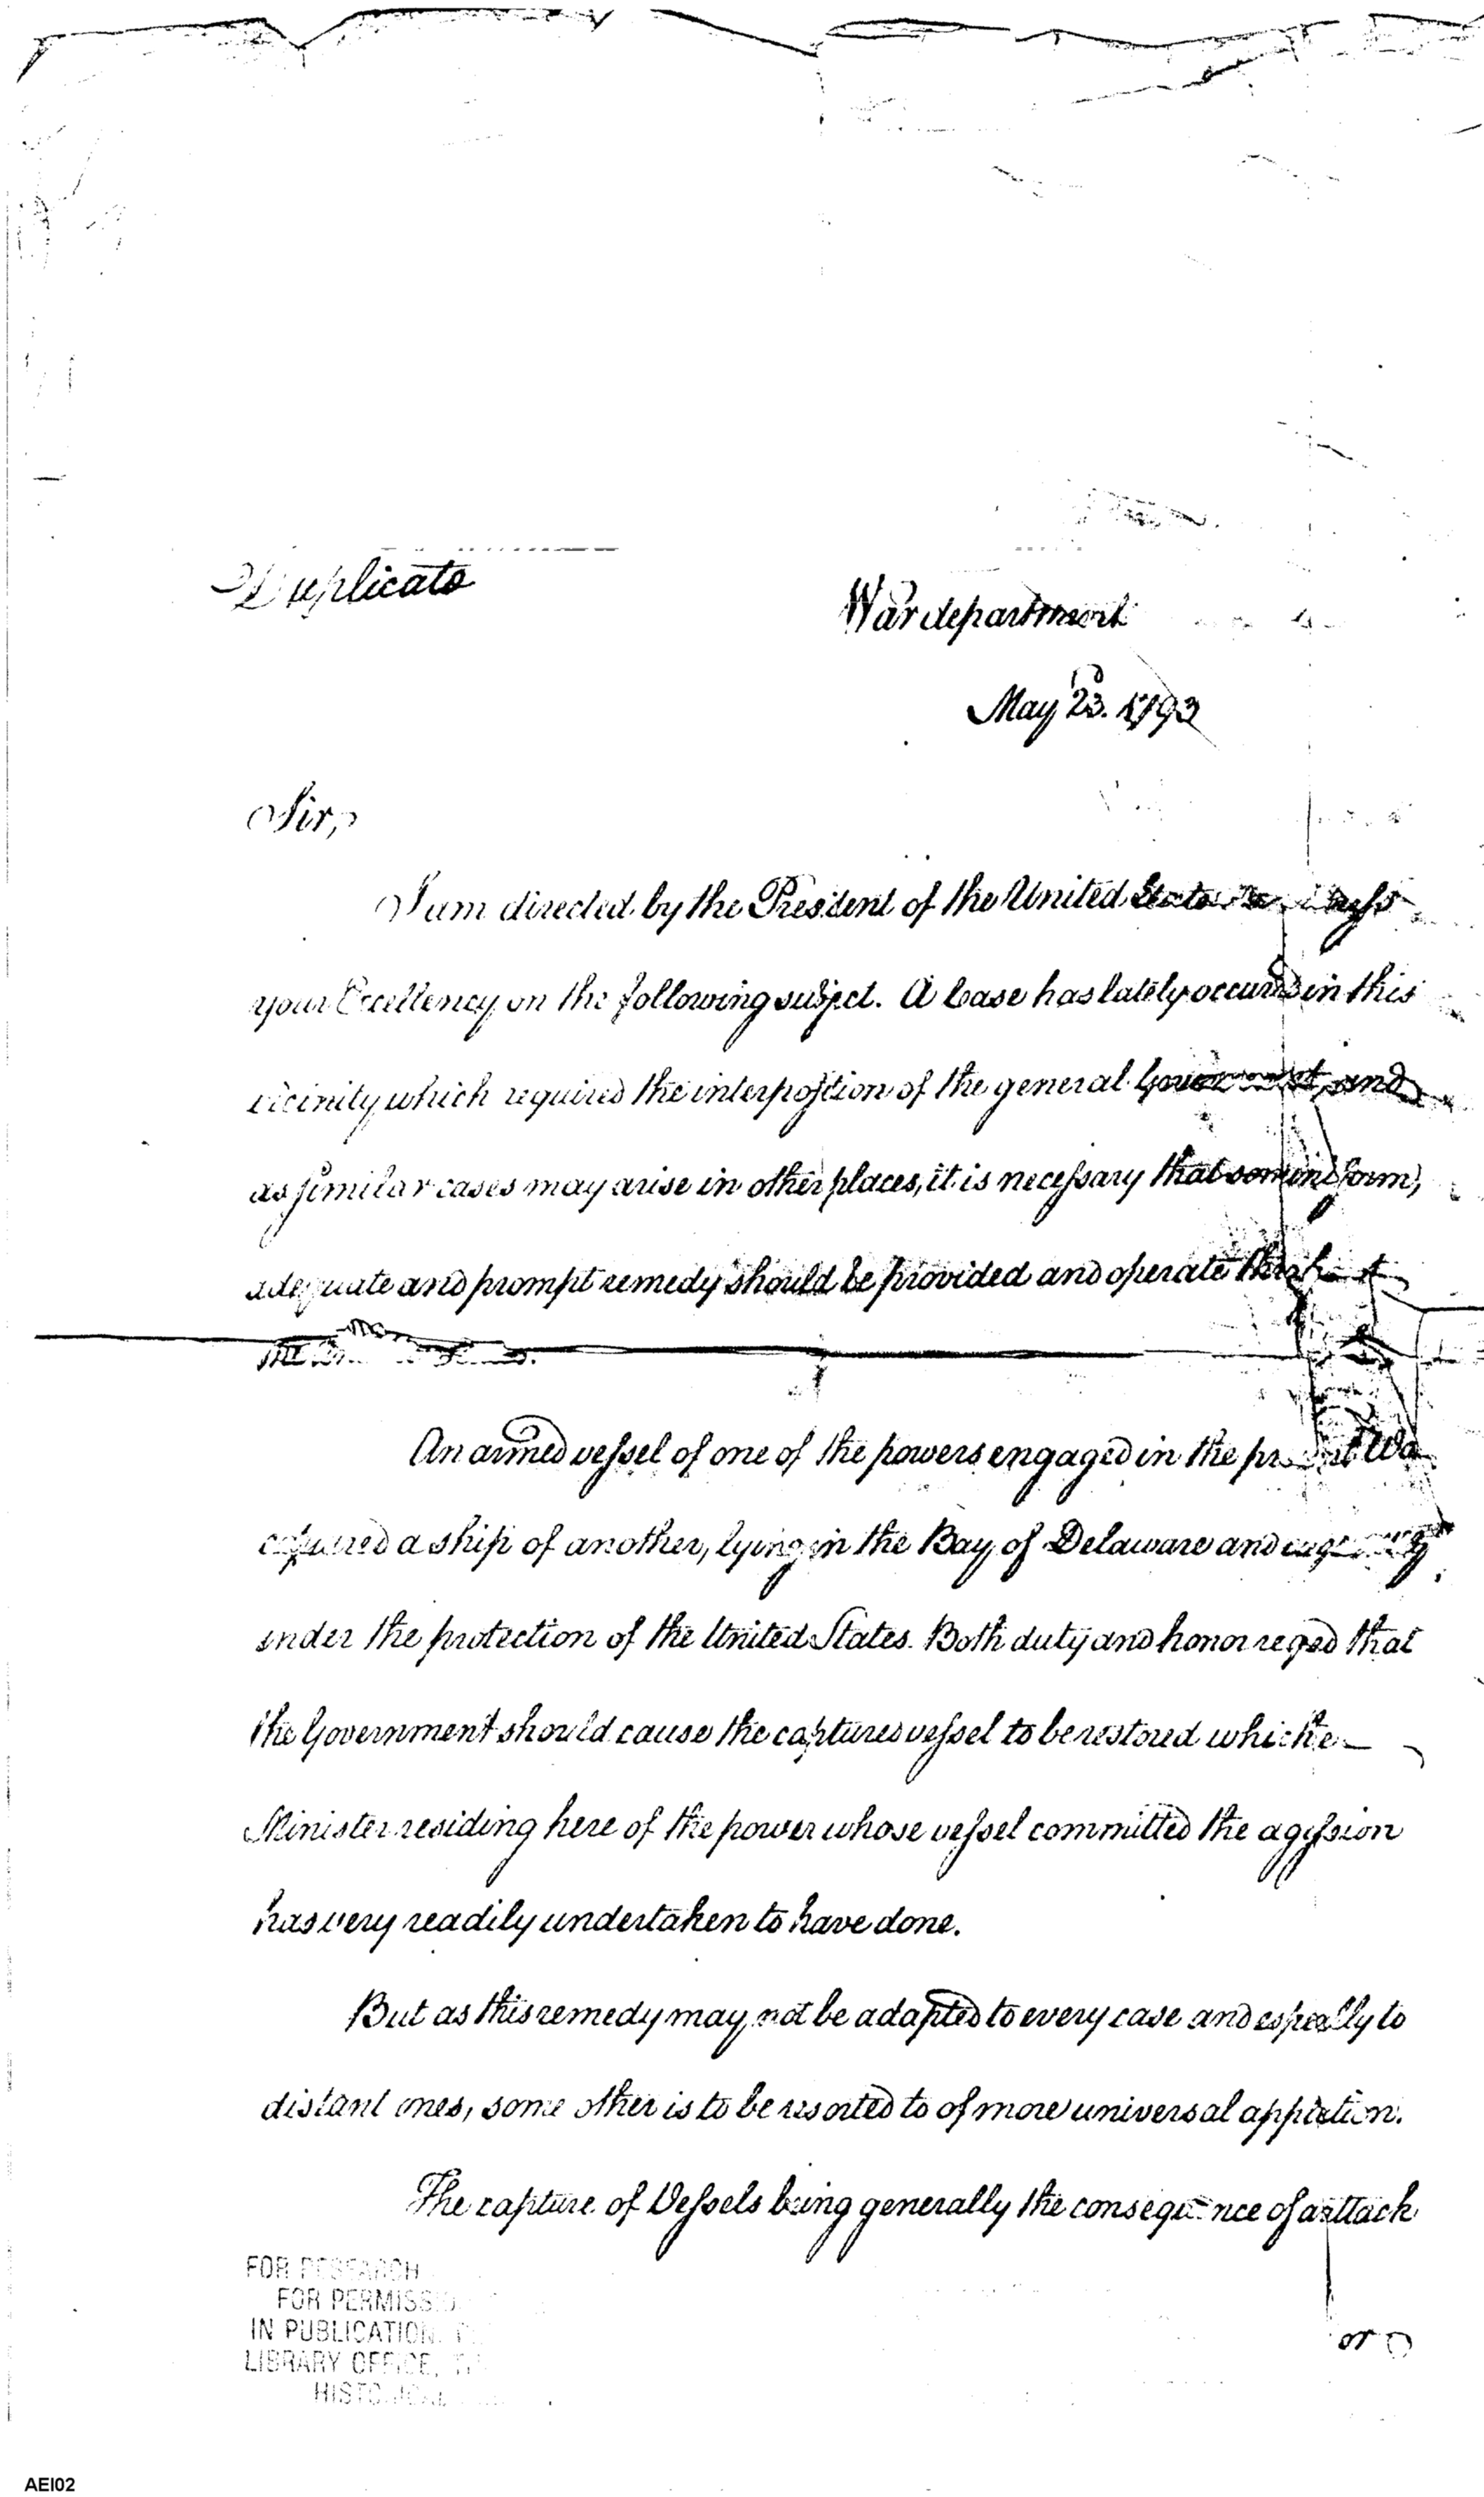 Duplicate
War department
May 23d. 1793
Sir,
I am directed by the President of the United States
your Excellency on the following subject. A Case has lately occured in this
vicinity which required the interposition of the general Government, and
as similar cases may arise in other places, it is necessary that some uniform,
adequate and prompt remedy should be provided and operate
the
An armed vessel of one of the powers engaged in the present War
captured a ship of another, lying in the Bay of Delaware and
under the protection of the United States. Both duty and honor that
the Government should cause the captured vessel to be restored which the
Minister residing here of the power whose vessel committed the agression
has very readily undertaken to have done.
But as this remedy may not be adapted to every case and especially to
distant ones, some other is to be resorted to of more universal application.
The capture of Vessels being generally the consequence of attack
or
FOR RESEARCH
FOR PERMISSION
IN PUBLICATION
LIBRARY OFFICE,
HISTORICAL
AEI02